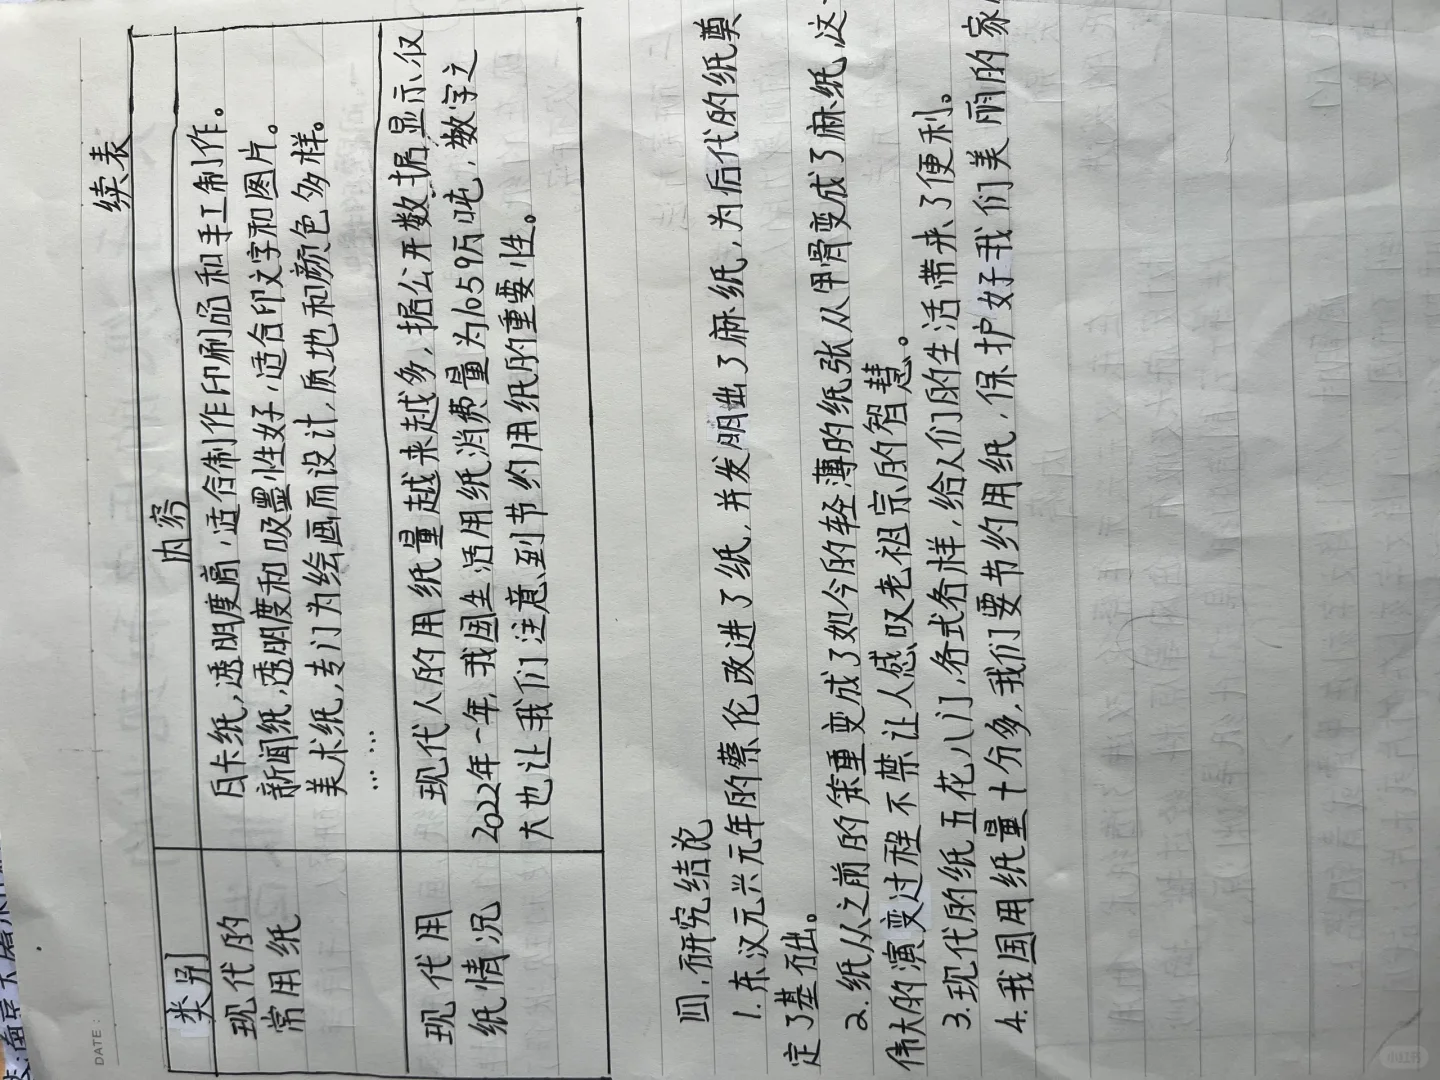 DATE:
续表
类别 内容
现代的常用纸 白卡纸,透明度高,适合制作印刷品和手工制作。
新闻纸,透明度和吸墨性好,适合印文字和图片。
美术纸,专门为绘画而设计,质地和颜色多样。
……
现代用纸情况 现代人的用纸量越来越多,据公开数据显示仅
2022年一年,我国生活用纸消费量为1059万吨,数字之
大也让我们注意到节约用纸的重要性。
四、研究结论
1.东汉元兴元年的蔡伦改进了纸,并发明出了麻纸,为后代的纸奠
定了基础。
2.纸从之前的笨重变成了如今的轻薄的纸张从甲骨变成了麻纸,这
伟大的演变过程不禁让人感叹老祖宗的智慧。
3.现代的纸五花八门,各式各样,给人们的生活带来了便利。
4.我国用纸量十分多,我们要节约用纸,保护好我们美丽的家
小红书